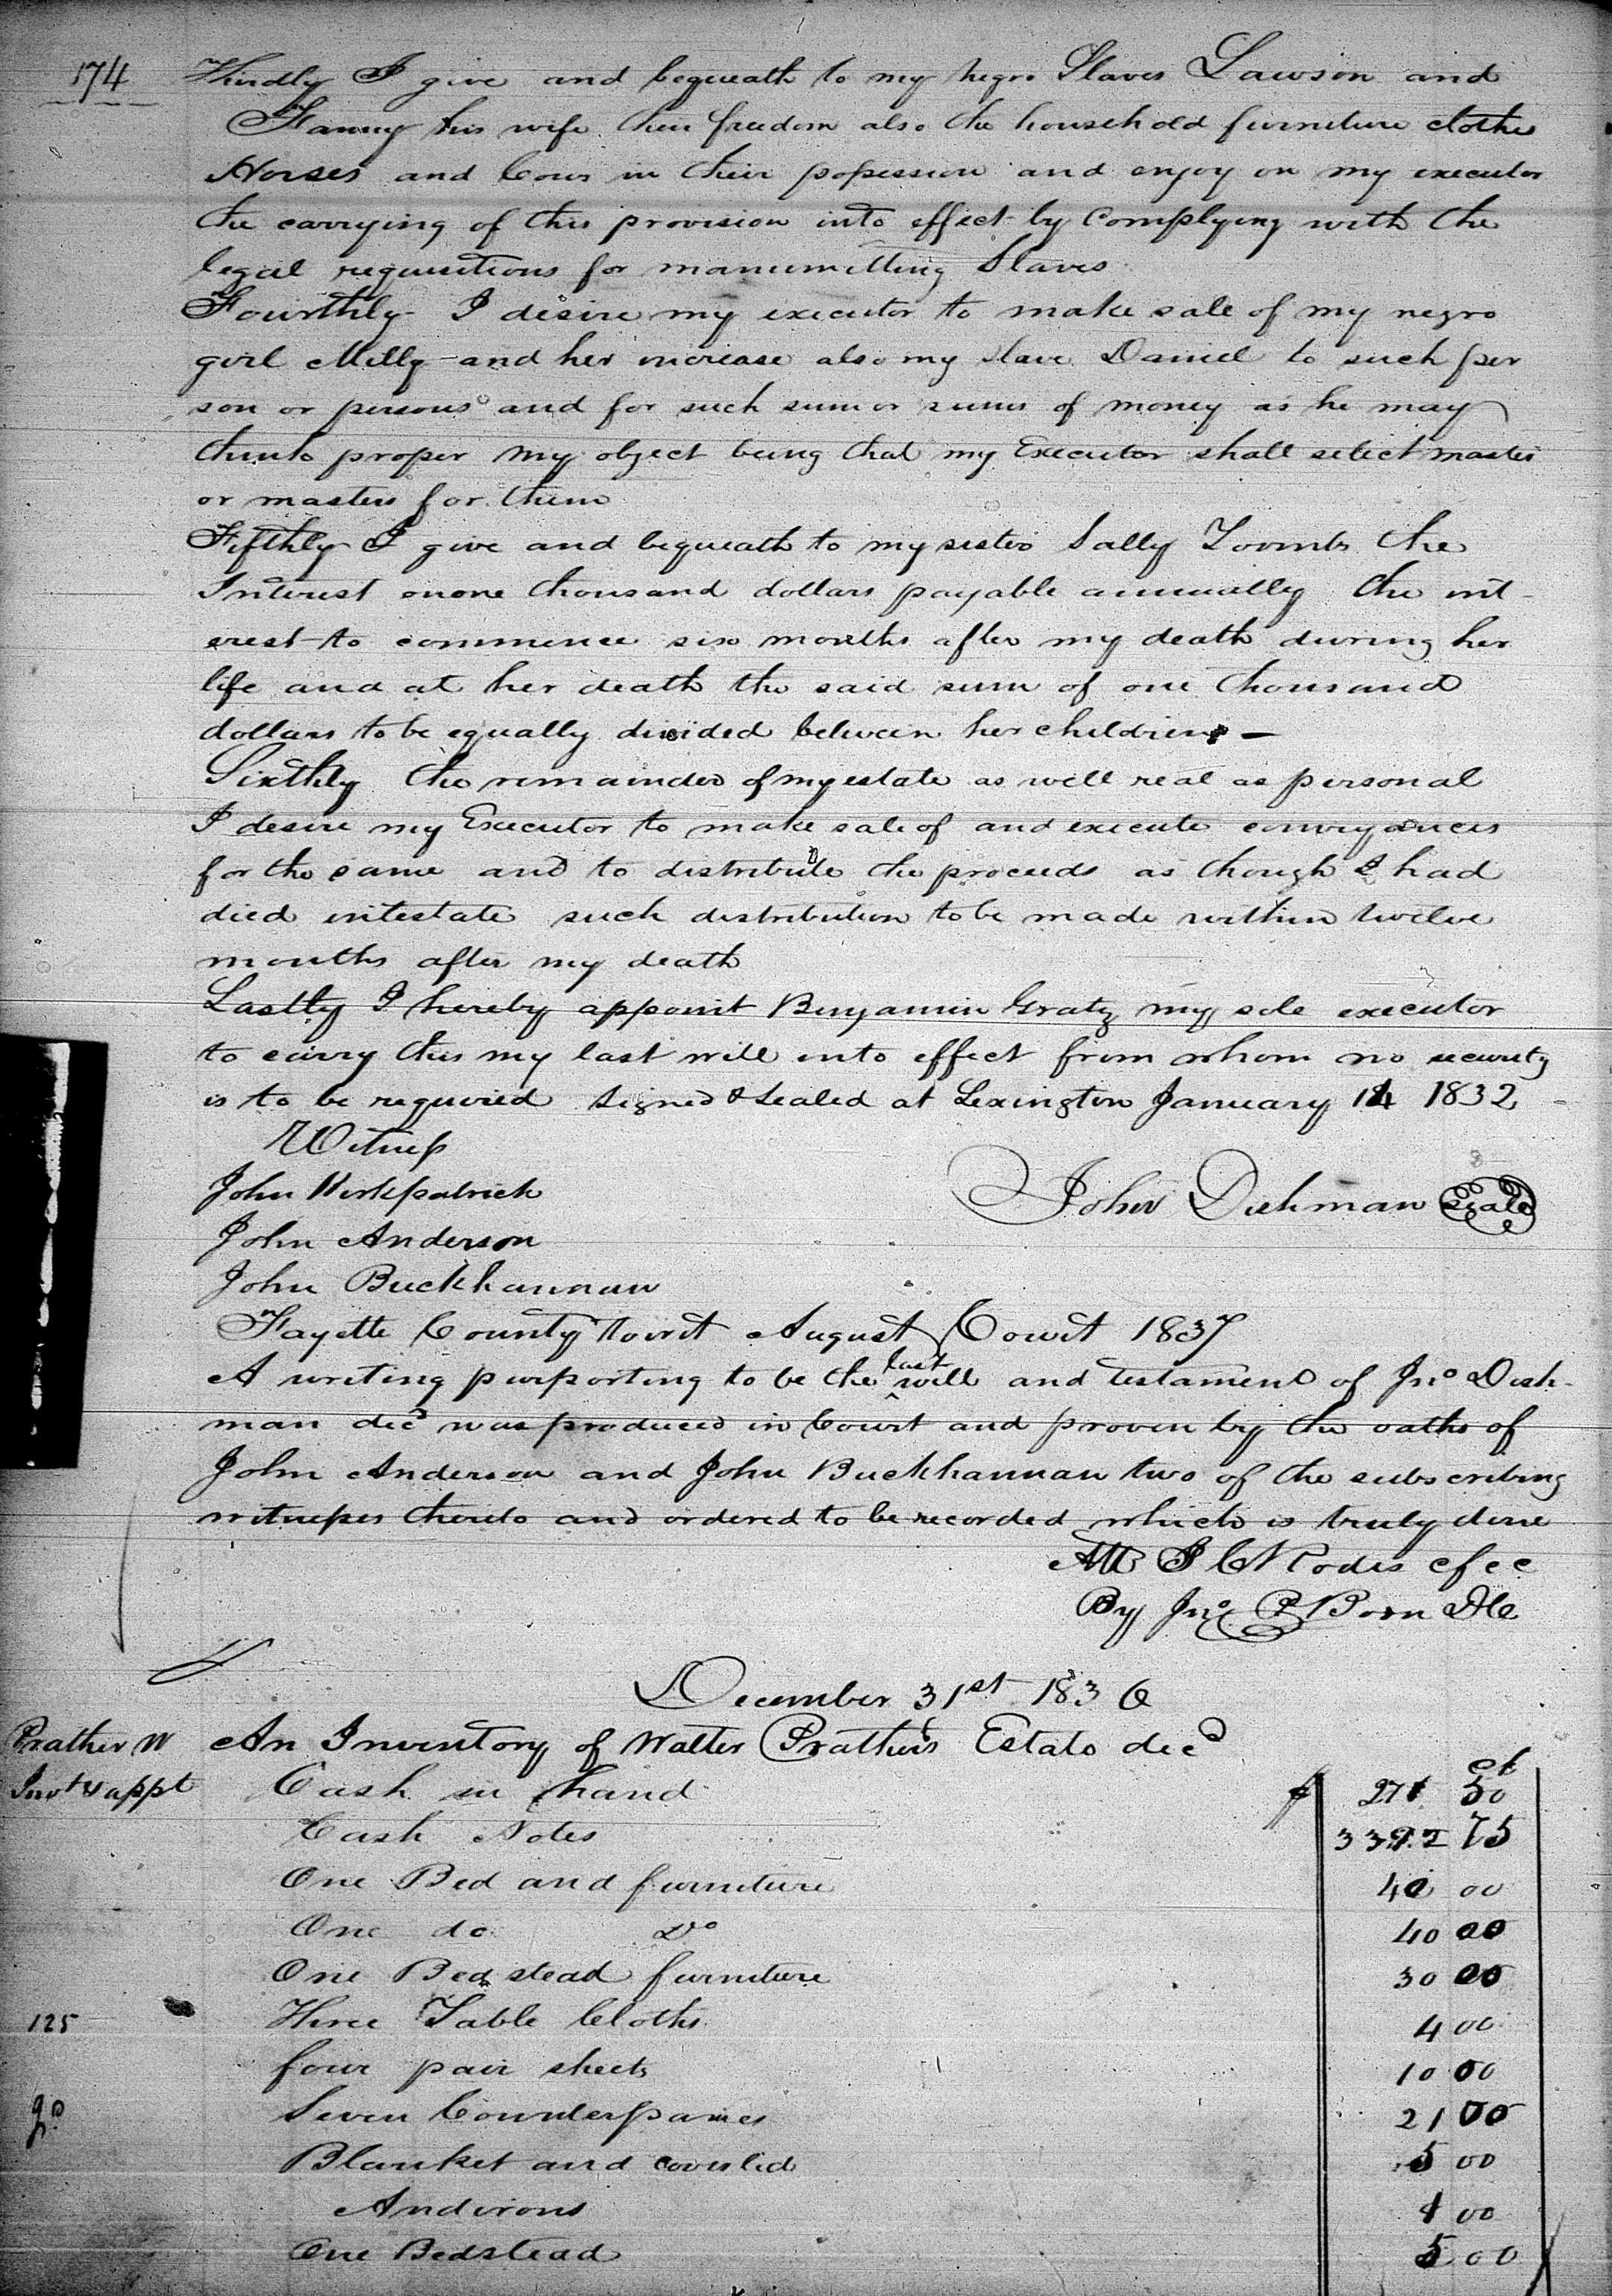 174
Thirdly I give and bequeath to my negro Slaves Lawson and
Fanny his wife their freedom also the household furniture clothes
Horses and Cows in their possession and enjoy on my executor
the carrying of this provision into effect by Complying with the
legal requisitions for manumitting Slaves
Fourthly I desire my executor to make sale of my negro
girl Milly and her increase also my slave Daniel to such per
son or persons and for such sum or sums of money as he may
think proper my object being that my Executor shall select master
or masters for them
Fifthly I give and bequeath to my sister Sally Toombs the
Interest on one thousand dollars payable annually the int-
erest to commence six months after my death during her
life and at her death the said sum of one thousand
dollars to be equally divided between her children —
Sixthly the remainder of my estate as well real as personal
I desire my Executor to make sale of and execute conveyances
for the same and to distribute the proceeds as though I had
died intestate such distribution to be made within twelve
months after my death
Lastly I hereby appoint Benjamin Gratz my sole executor
to carry this my last will into effect from whom no security
is to be required Signed & Sealed at Lexington January 14 1832
Witness
John Kirkpatrick
John Dishman Seal
John Anderson
John Buckhannan
Fayette County Court August Court 1837
A writing purporting to be the last will and testament of Jno Dish-
man decd was produced in Court and proven by the oaths of
John Anderson and John Buckhannan two of the subscribing
witnesses thereto and ordered to be recorded which is truly done
Att J C Rodes cfcc
By Jno Born DC
December 31st 1836
Prather W
An Inventory of Walter Prathers Estate decd
Invt & appt
ct
Cash in hand $ 271 50
Cash Notes 75
One Bed and furniture 40 00
One do Do 40 00
One Bedstead furniture 30 00
125
Three Table Cloths 4 00
four pair sheets 10 00
Seven Counterpanes 21 00
Blanket and coverled 5 00
Andirons 00
One Bedstead 5 00